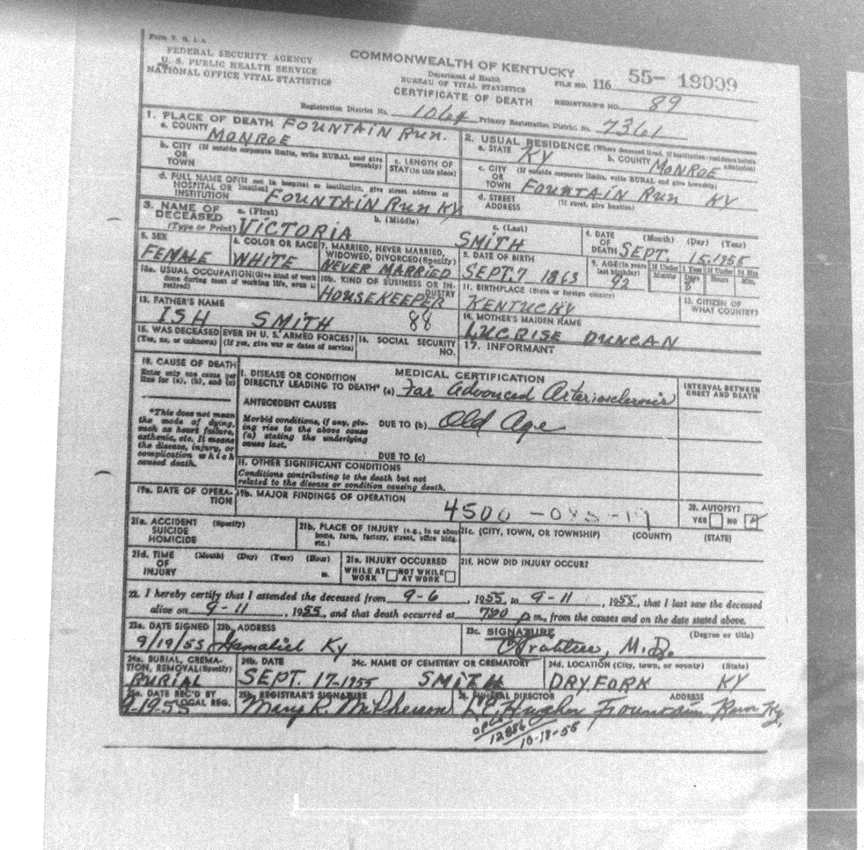 Form V. S. 1-A
FEDERAL SECURITY AGENCY
U. S. PUBLIC HEALTH SERVICE
NATIONAL OFFICE VITAL STATISTICS
COMMONWEALTH OF KENTUCKY
Department of Health
BUREAU OF VITAL STATISTICS
CERTIFICATE OF DEATH
FILE NO. 116 55-19009
REGISTRAR'S NO. 89
Registration District No. 1064 Primary Registration District No. 7361
1. PLACE OF DEATH FOUNTAIN RUN.
a. COUNTY MONROE
2. USUAL RESIDENCE (Where deceased lived. If institution: residence before admission)
a. STATE KY b. COUNTY MONROE
b. CITY (If outside corporate limits, write RURAL and give township) OR TOWN
c. LENGTH OF STAY (in this place)
c. CITY (If outside corporate limits, write RURAL and give township) OR TOWN FOUNTAIN RUN KY
d. FULL NAME OF (If not in hospital or institution, give street address or location) HOSPITAL OR INSTITUTION FOUNTAIN RUN KY
d. STREET ADDRESS (If rural, give location)
3. NAME OF DECEASED (Type or Print) a. (First) VICTORIA b. (Middle) c. (Last) SMITH
4. DATE OF DEATH (Month) (Day) (Year) SEPT. 15, 1955
5. SEX FEMALE
6. COLOR OR RACE WHITE
7. MARRIED, NEVER MARRIED, WIDOWED, DIVORCED (Specify) NEVER MARRIED
8. DATE OF BIRTH SEPT. 7 1863
9. AGE (In years last birthday) 92 If Under 1 Year Months Days 8 If Under 24 Hrs. Hours Min.
10a. USUAL OCCUPATION (Give kind of work done during most of working life, even if retired)
10b. KIND OF BUSINESS OR INDUSTRY HOUSEKEEPER
11. BIRTHPLACE (State or foreign country) KENTUCKY
12. CITIZEN OF WHAT COUNTRY?
13. FATHER'S NAME ISH SMITH 88
14. MOTHER'S MAIDEN NAME LUCRISE DUNCAN
15. WAS DECEASED EVER IN U. S. ARMED FORCES? (Yes, no, or unknown) (If yes, give war or dates of service)
16. SOCIAL SECURITY NO.
17. INFORMANT
18. CAUSE OF DEATH
Enter only one cause per line for (a), (b), and (c)
MEDICAL CERTIFICATION
INTERVAL BETWEEN ONSET AND DEATH
I. DISEASE OR CONDITION DIRECTLY LEADING TO DEATH* (a) Far Advanced Arteriosclerosis
*This does not mean the mode of dying, such as heart failure, asthenia, etc. It means the disease, injury, or complication which caused death.
ANTECEDENT CAUSES
Morbid conditions, if any, giving rise to the above cause (a) stating the underlying cause last.
DUE TO (b) Old Age
DUE TO (c)
II. OTHER SIGNIFICANT CONDITIONS
Conditions contributing to the death but not related to the disease or condition causing death.
19a. DATE OF OPERATION
19b. MAJOR FINDINGS OF OPERATION
4500
20. AUTOPSY? YES NO
21a. ACCIDENT SUICIDE HOMICIDE (Specify)
21b. PLACE OF INJURY (e.g., in or about home, farm, factory, street, office bldg., etc.)
21c. (CITY, TOWN, OR TOWNSHIP) (COUNTY) (STATE)
21d. TIME OF INJURY (Month) (Day) (Year) (Hour) m.
21e. INJURY OCCURRED WHILE AT WORK NOT WHILE AT WORK
21f. HOW DID INJURY OCCUR?
22. I hereby certify that I attended the deceased from 9-6, 1955, to 9-11, 1955, that I last saw the deceased
alive on 9-11, 1955, and that death occurred at 7:00 p m., from the causes and on the date stated above.
23a. DATE SIGNED 9/19/55
23b. ADDRESS Gamaliel Ky
23c. SIGNATURE (Degree or title) Crabtree, M.D.
24a. BURIAL, CREMATION, REMOVAL (Specify) BURIAL
24b. DATE SEPT. 17-1955
24c. NAME OF CEMETERY OR CREMATORY SMITH
24d. LOCATION (City, town, or county) (State) DRYFORK KY
25a. DATE REC'D BY LOCAL REG. 9-19-55
25b. REGISTRAR'S SIGNATURE Mary R. McPherson
FUNERAL DIRECTOR ADDRESS
Fountain Run Ky.
12886
10-18-55